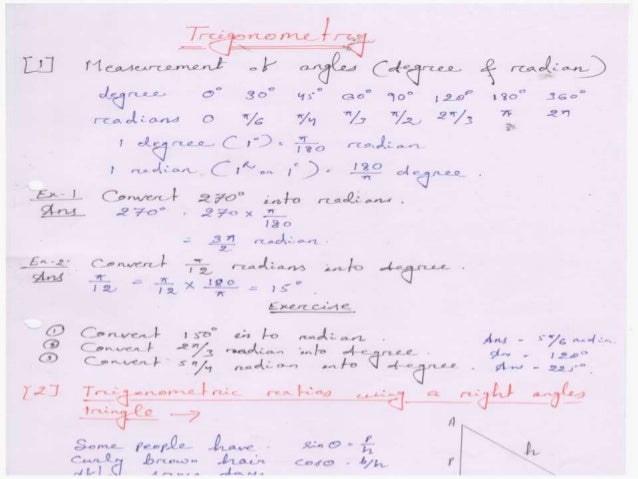 Trigonometry
[1] Measurement of angles (degree & radian)
degree 0° 30° 45° 60° 90° 120° 180° 360°
radians 0 π/6 π/4 π/3 π/2 2π/3 π 2π
1 degree (1°) = π/180 radian
1 radian (1ᴿ or 1ᶜ) = 180/π degree.
Ex-1 Convert 270° into radians.
Ans 270° = 270 × π/180
= 3π/2 radian.
Ex-2 Convert π/12 radians into degree.
Ans π/12 = π/12 × 180/π = 15°
Exercise
① Convert 150° into radian. Ans = 5π/6 radian
② Convert 2π/3 radian into degree. Ans = 120°
③ Convert 5π/4 radian into degree. Ans = 225°.
[2] Trigonometric ratios using a right angles
tringle →
Some people have sin θ = P/h
Curly brown hair cos θ = b/h
A
P h